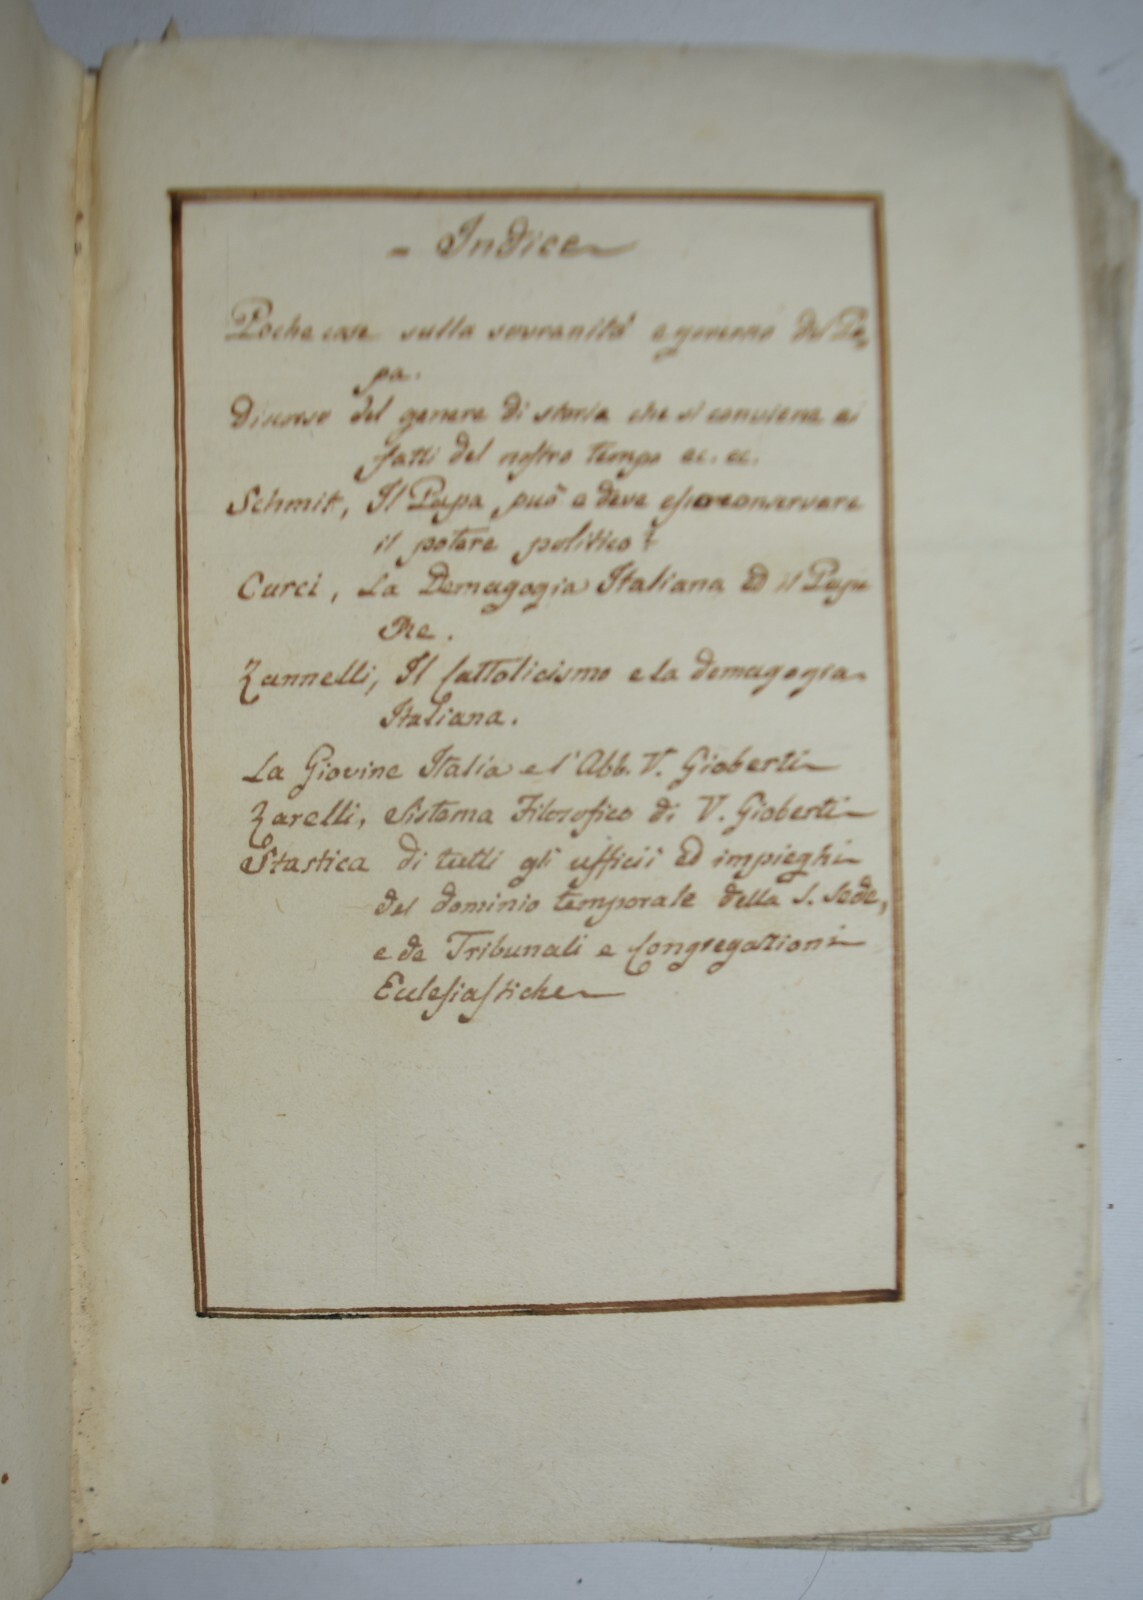 - Indice
Poche cose sulla sovranità e governo del Pa-
pa.
Discorso del genere di storia che si conviene ai
fatti del nostro tempo ec. ec.
Schmit, Il Papa può e deve conservare
il potere politico?
Curci, La Demagogia Italiana ed il Papa
Re.
Zannelli, Il Cattolicismo e la demagogia
Italiana.
La Giovine Italia e l'Abb. V. Gioberti
Zarelli, Sistema Filosofico di V. Gioberti
Stastica di tutti gli ufficii ed impieghi
del dominio temporale della S. Sede,
e de Tribunali e Congregazioni
Ecclesiastiche